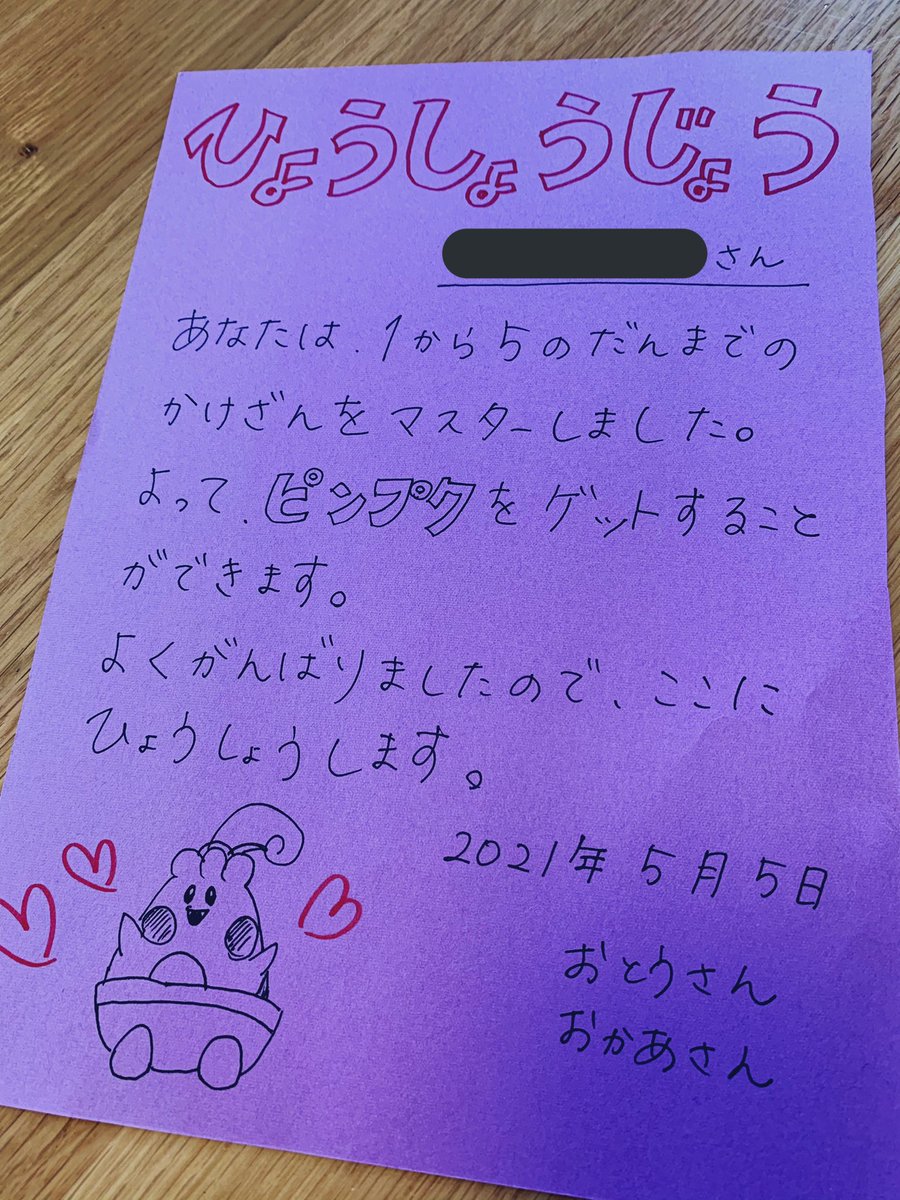 ひょうしょうじょう
さん
あなたは、1から5のだんまでの
かけざんをマスターしました。
よって、ピンプクをゲットすること
ができます。
よくがんばりましたので、ここに
ひょうしょうします。
2021年5月5日
おとうさん
おかあさん